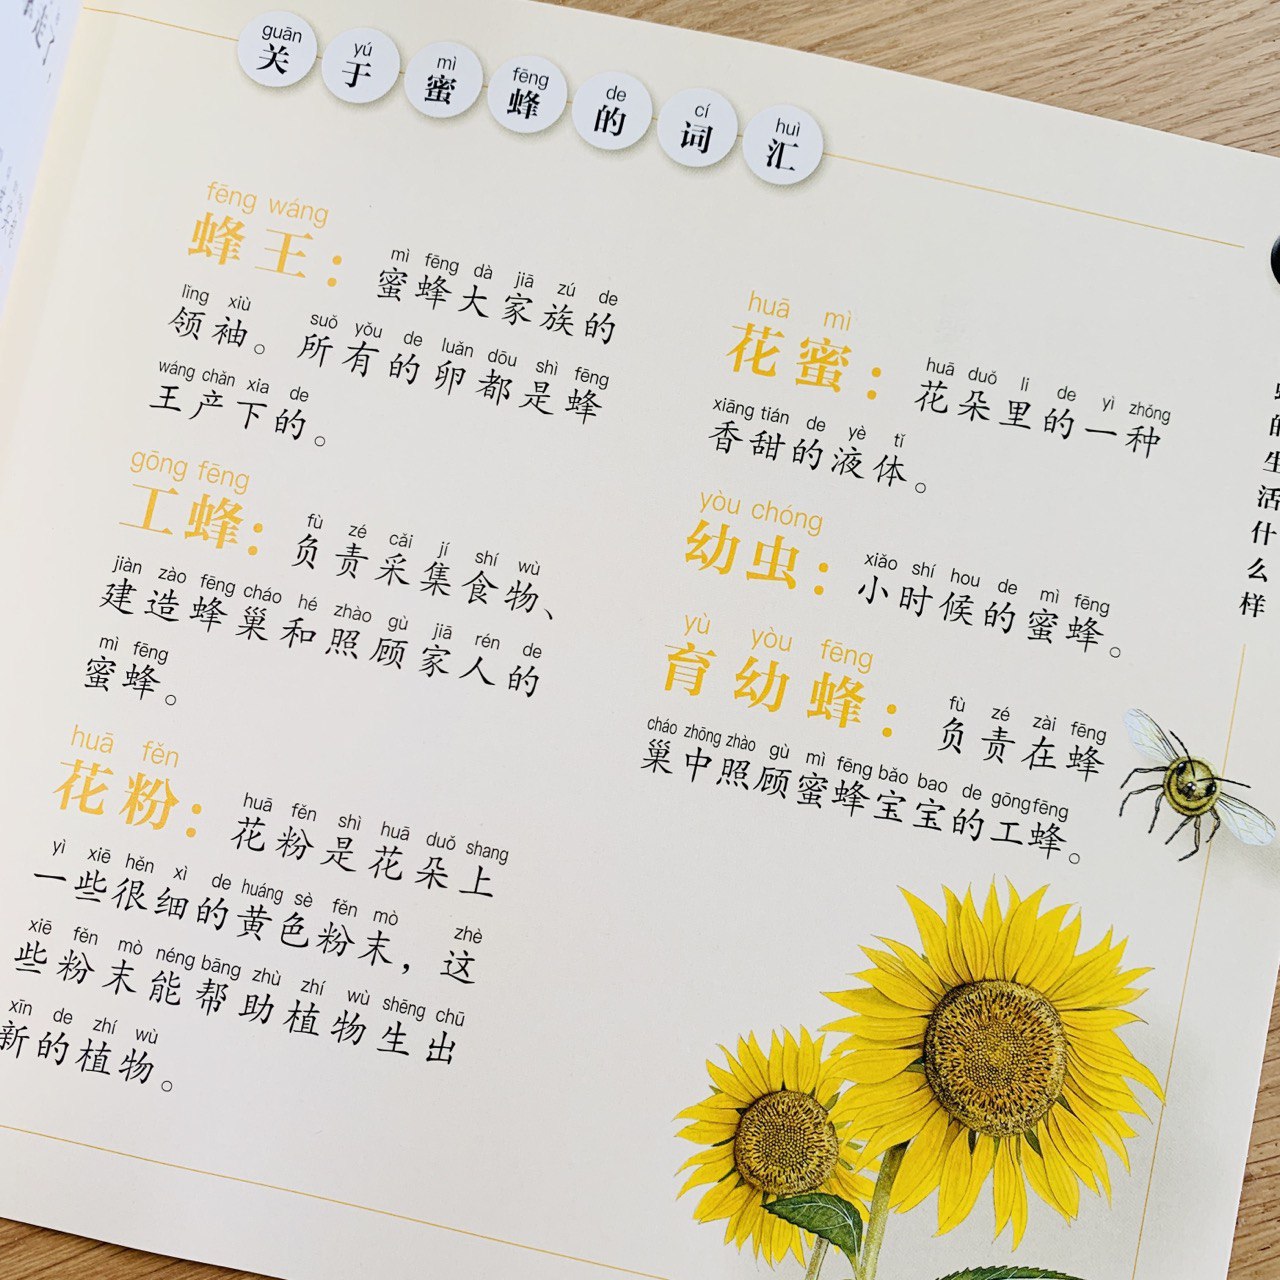 guān yú mì fēng de cí huì
关于蜜蜂的词汇
fēng wáng
蜂王：
mì fēng dà jiā zú de
蜜蜂大家族的
lǐng xiù suǒ yǒu de luǎn dōu shì fēng
领袖。所有的卵都是蜂
wáng chǎn xia de
王产下的。
gōng fēng
工蜂：
fù zé cǎi jí shí wù
负责采集食物、
jiàn zào fēng cháo hé zhào gù jiā rén de
建造蜂巢和照顾家人的
mì fēng
蜜蜂。
huā fěn
花粉：
huā fěn shì huā duǒ shang
花粉是花朵上
yì xiē hěn xì de huáng sè fěn mò zhè
一些很细的黄色粉末，这
xiē fěn mò néng bāng zhù zhí wù shēng chū
些粉末能帮助植物生出
xīn de zhí wù
新的植物。
huā mì
花蜜：
huā duǒ li de yì zhǒng
花朵里的一种
xiāng tián de yè tǐ
香甜的液体。
yòu chóng
幼虫：
xiǎo shí hou de mì fēng
小时候的蜜蜂。
yù yòu fēng
育幼蜂：
fù zé zài fēng
负责在蜂
cháo zhōng zhào gù mì fēng bǎo bao de gōng fēng
巢中照顾蜜蜂宝宝的工蜂。
的生活什么样